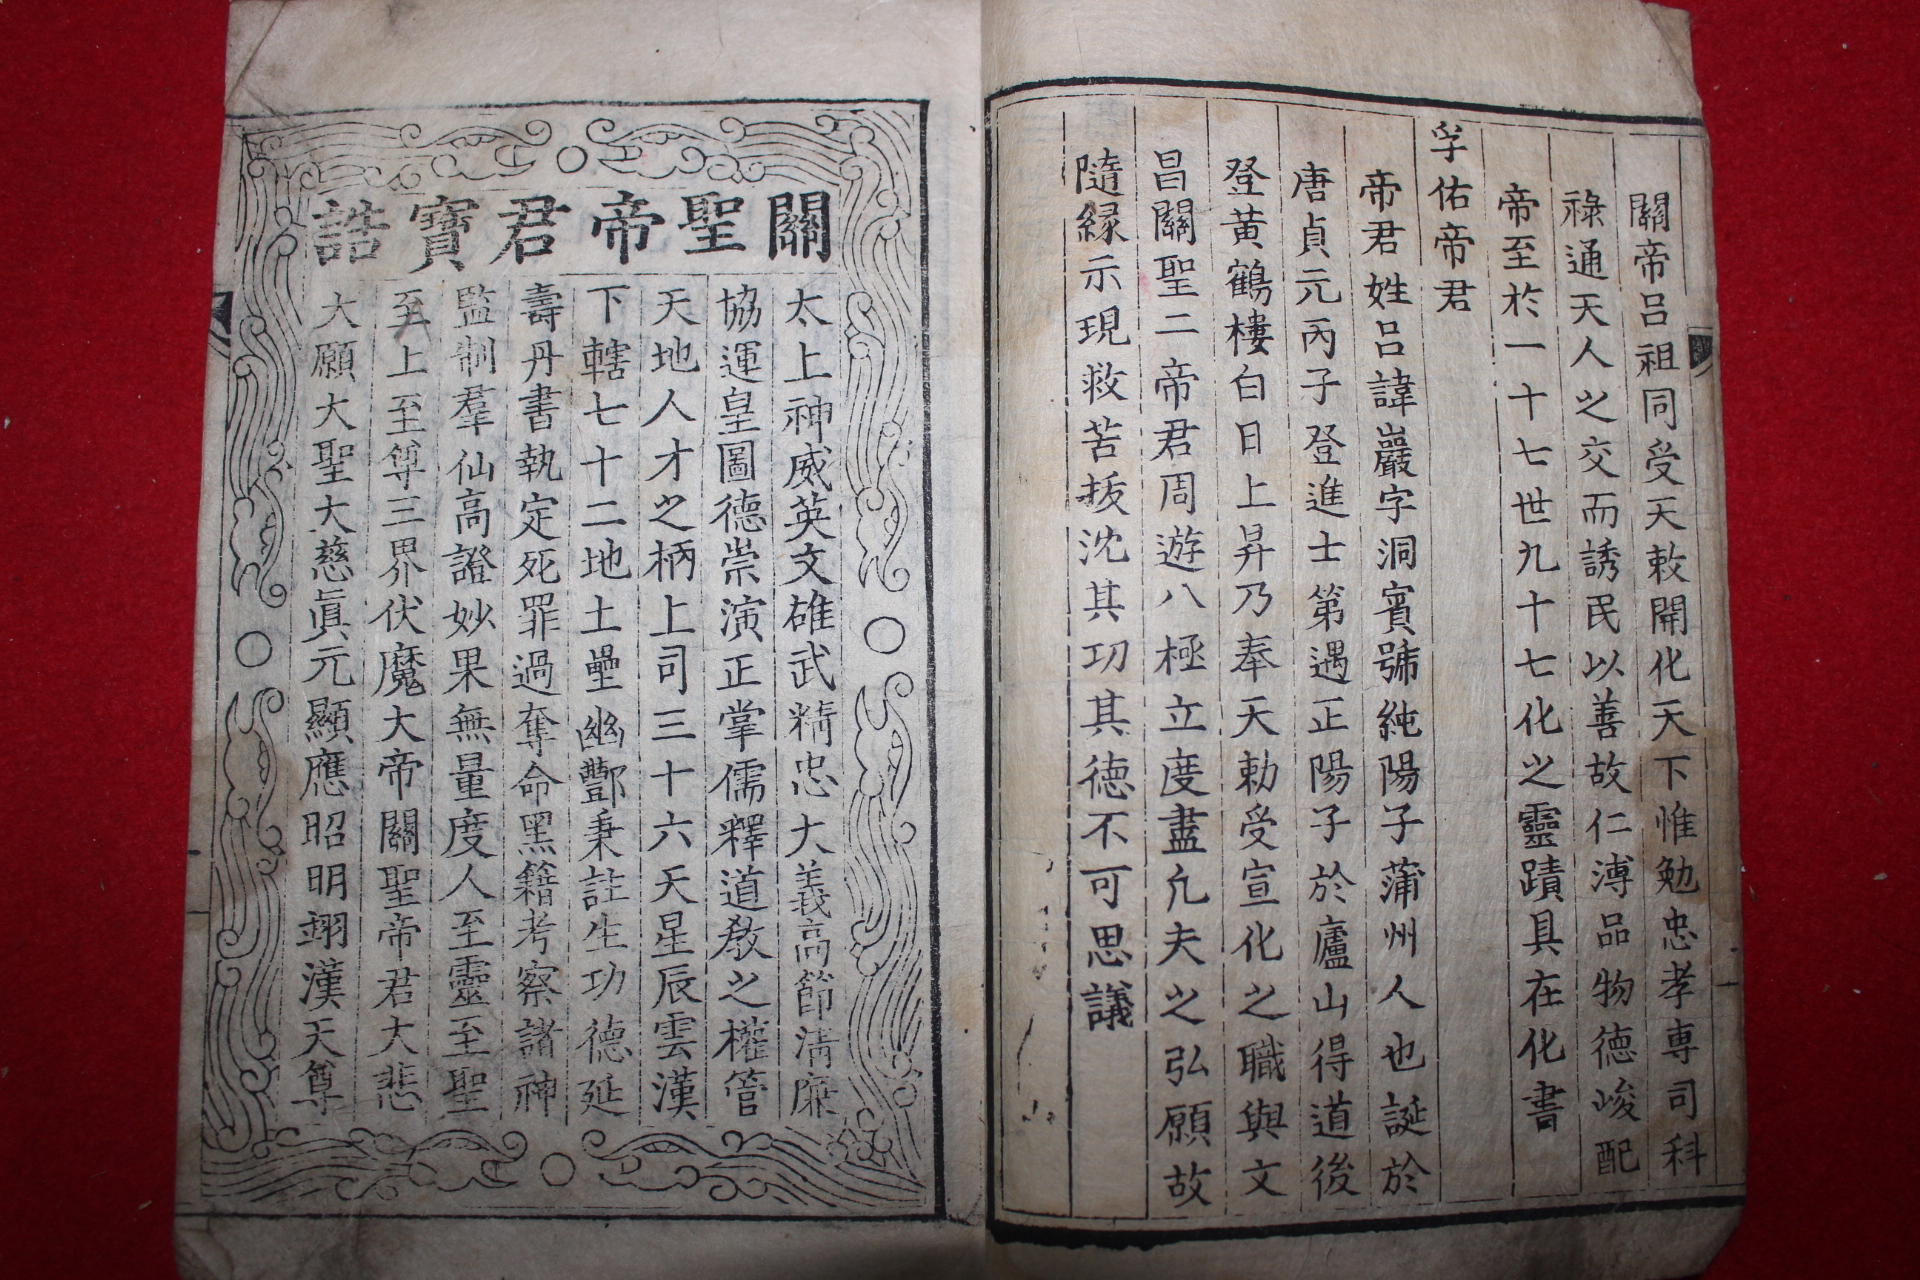 關帝呂祖同受天敕開化天下惟勉忠孝專司科
祿通天人之交而誘民以善故仁溥品物德峻配
帝至於一十七世九十七化之靈蹟具在化書
孚佑帝君
帝君姓呂諱巖字洞賓號純陽子蒲州人也誕於
唐貞元丙子登進士第遇正陽子於廬山得道後
登黃鶴樓白日上昇乃奉天勅受宣化之職與文
昌關聖二帝君周遊八極立度盡凢夫之弘願故
隨緣示現救苦拔沈其功其德不可思議
關聖帝君寶誥
太上神威英文雄武精忠大義高節清廉
協運皇圖德崇演正掌儒釋道教之權管
天地人才之柄上司三十六天星辰雲漢
下轄七十二地土壘幽酆秉註生功德延
壽丹書執定死罪過奪命黑籍考察諸神
監制羣仙高證妙果無量度人至靈至聖
至上至尊三界伏魔大帝關聖帝君大悲
大願大聖大慈眞元顯應昭明翊漢天尊